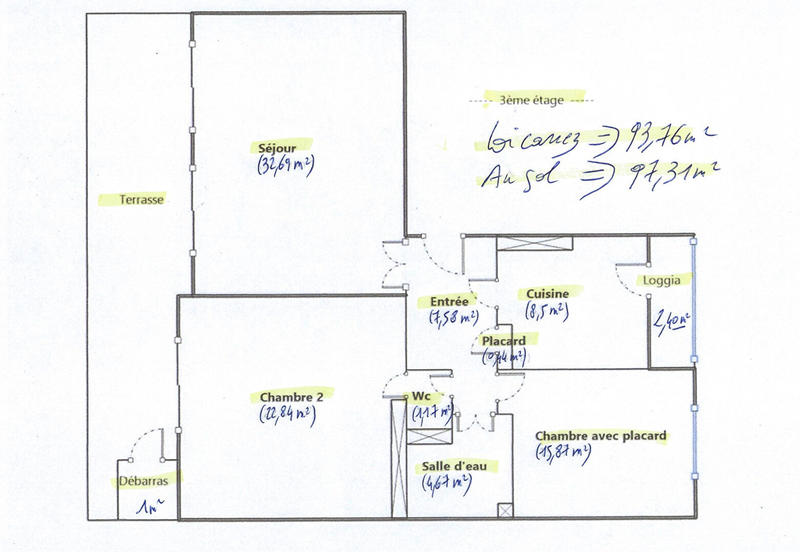 3ème étage
Loi carrez => 93,76 m²
Au sol => 97,31 m²
Séjour
(32,69 m²)
Terrasse
Loggia
2,40 m²
Entrée
(7,58 m²)
Cuisine
(8,5 m²)
Placard
(0,44 m²)
Chambre 2
(22,84 m²)
Wc
(1,17 m²)
Chambre avec placard
(15,87 m²)
Salle d'eau
(4,67 m²)
Débarras
1 m²